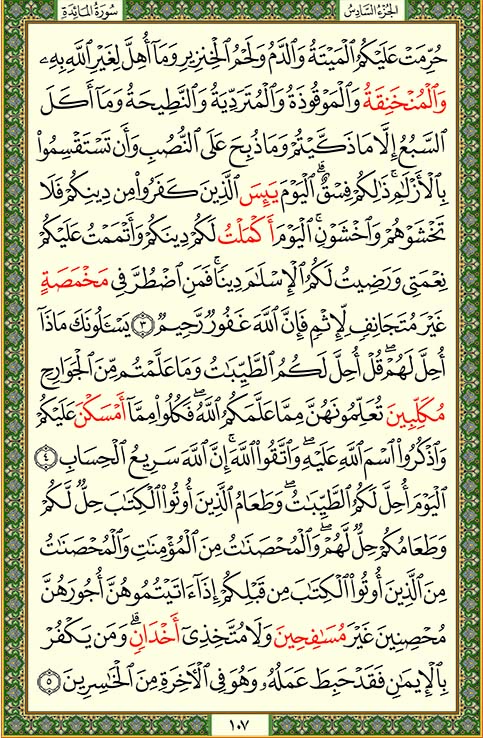 الجزء السادس سورة المائدة
حُرِّمَتْ عَلَيْكُمُ ٱلْمَيْتَةُ وَٱلدَّمُ وَلَحْمُ ٱلْخِنزِيرِ وَمَآ أُهِلَّ لِغَيْرِ ٱللَّهِ بِهِۦ
وَٱلْمُنْخَنِقَةُ وَٱلْمَوْقُوذَةُ وَٱلْمُتَرَدِّيَةُ وَٱلنَّطِيحَةُ وَمَآ أَكَلَ
ٱلسَّبُعُ إِلَّا مَا ذَكَّيْتُمْ وَمَا ذُبِحَ عَلَى ٱلنُّصُبِ وَأَن تَسْتَقْسِمُوا۟
بِٱلْأَزْلَٰمِ ۚ ذَٰلِكُمْ فِسْقٌ ۗ ٱلْيَوْمَ يَئِسَ ٱلَّذِينَ كَفَرُوا۟ مِن دِينِكُمْ فَلَا
تَخْشَوْهُمْ وَٱخْشَوْنِ ۚ ٱلْيَوْمَ أَكْمَلْتُ لَكُمْ دِينَكُمْ وَأَتْمَمْتُ عَلَيْكُمْ
نِعْمَتِى وَرَضِيتُ لَكُمُ ٱلْإِسْلَٰمَ دِينًا ۚ فَمَنِ ٱضْطُرَّ فِى مَخْمَصَةٍ
غَيْرَ مُتَجَانِفٍ لِّإِثْمٍ ۙ فَإِنَّ ٱللَّهَ غَفُورٌ رَّحِيمٌ ۝٣ يَسْـَٔلُونَكَ مَاذَآ
أُحِلَّ لَهُمْ ۖ قُلْ أُحِلَّ لَكُمُ ٱلطَّيِّبَٰتُ ۙ وَمَا عَلَّمْتُم مِّنَ ٱلْجَوَارِحِ
مُكَلِّبِينَ تُعَلِّمُونَهُنَّ مِمَّا عَلَّمَكُمُ ٱللَّهُ ۖ فَكُلُوا۟ مِمَّآ أَمْسَكْنَ عَلَيْكُمْ
وَٱذْكُرُوا۟ ٱسْمَ ٱللَّهِ عَلَيْهِ ۖ وَٱتَّقُوا۟ ٱللَّهَ ۚ إِنَّ ٱللَّهَ سَرِيعُ ٱلْحِسَابِ ۝٤
ٱلْيَوْمَ أُحِلَّ لَكُمُ ٱلطَّيِّبَٰتُ ۖ وَطَعَامُ ٱلَّذِينَ أُوتُوا۟ ٱلْكِتَٰبَ حِلٌّ لَّكُمْ
وَطَعَامُكُمْ حِلٌّ لَّهُمْ ۖ وَٱلْمُحْصَنَٰتُ مِنَ ٱلْمُؤْمِنَٰتِ وَٱلْمُحْصَنَٰتُ
مِنَ ٱلَّذِينَ أُوتُوا۟ ٱلْكِتَٰبَ مِن قَبْلِكُمْ إِذَآ ءَاتَيْتُمُوهُنَّ أُجُورَهُنَّ
مُحْصِنِينَ غَيْرَ مُسَٰفِحِينَ وَلَا مُتَّخِذِىٓ أَخْدَانٍ ۗ وَمَن يَكْفُرْ
بِٱلْإِيمَٰنِ فَقَدْ حَبِطَ عَمَلُهُۥ وَهُوَ فِى ٱلْءَاخِرَةِ مِنَ ٱلْخَٰسِرِينَ ۝٥
١٠٧